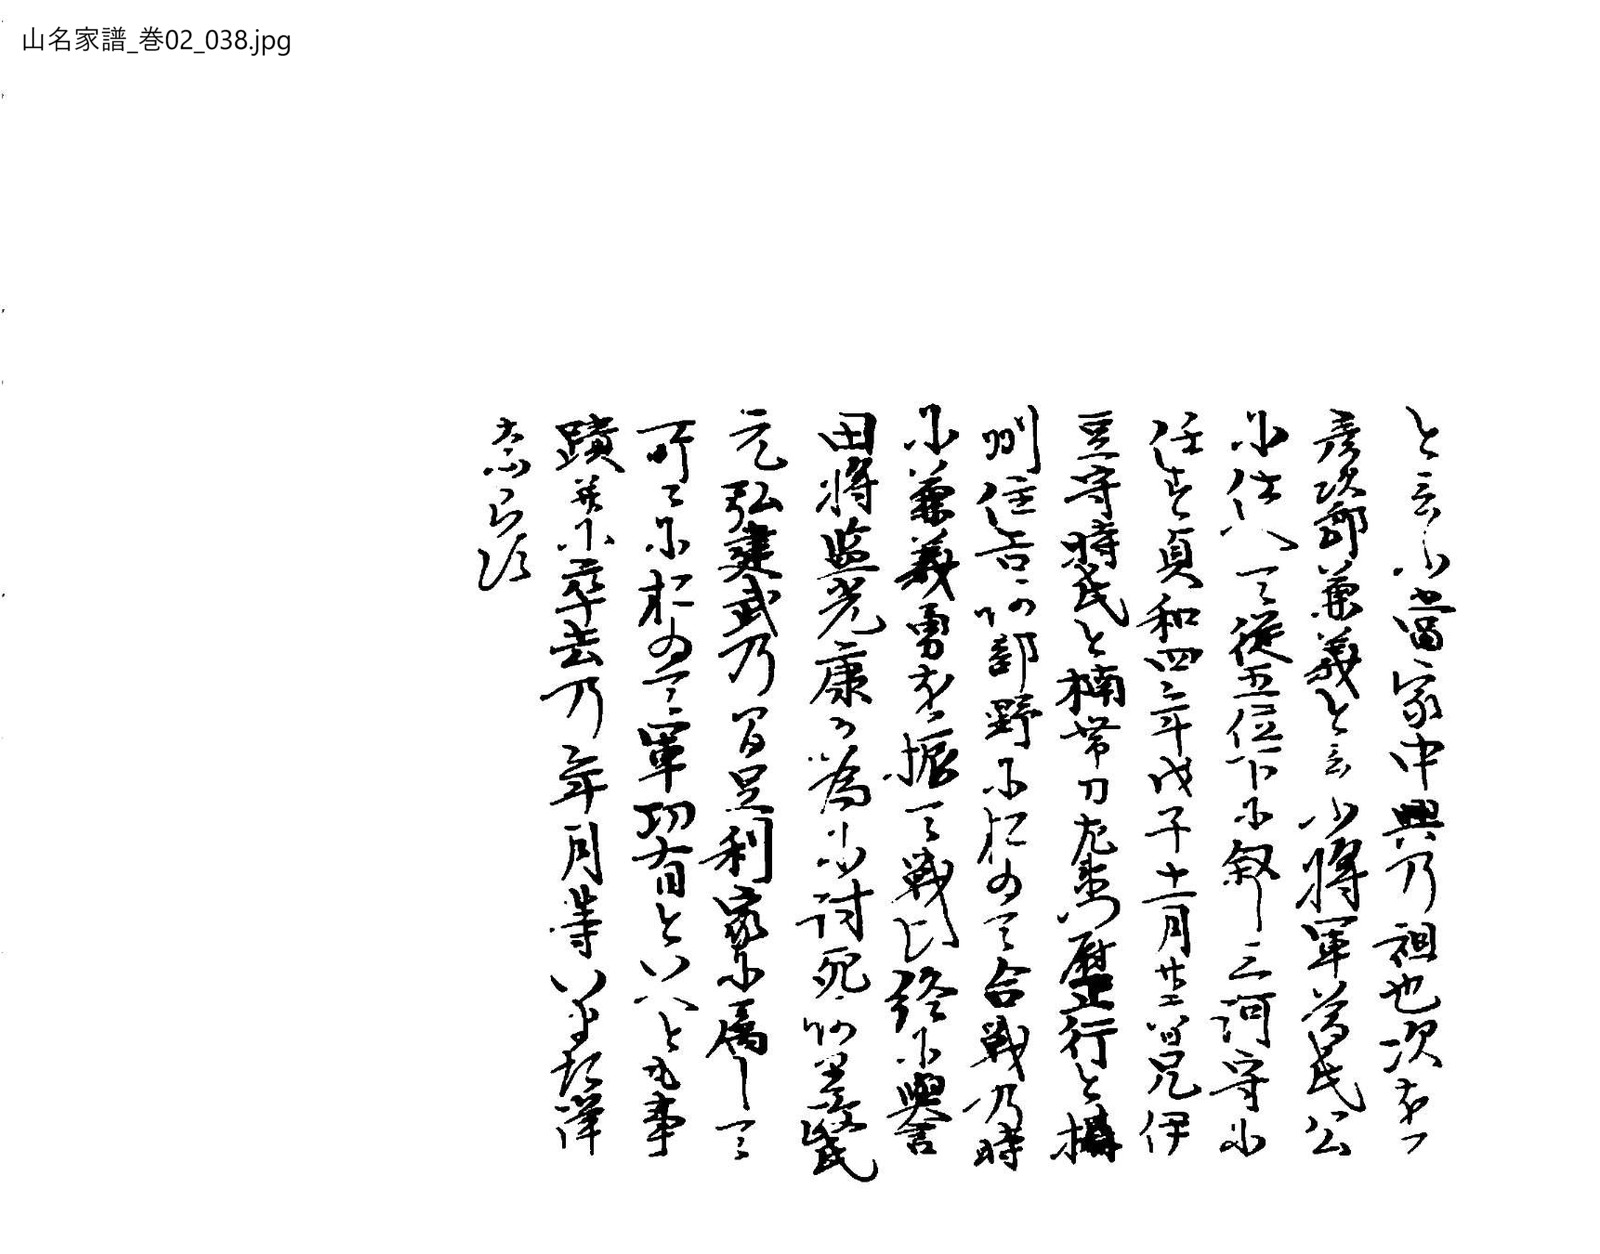 山名家譜_巻02_038.jpg
と云ふ當家中興乃祖也次を
彦次郎兼義と云ふ將軍尊氏公
に仕へて従五位下に叙し三河守に
任す貞和四年戊子十一月廿六日兄伊
豆守時氏と楠帯刀左衛門尉正行と攝
州住吉阿部野に於ゐて合戦乃時
に兼義勇を振て戦ひ終に與吉
田將監光康か為に討死
元弘建武乃間足利家に属して
所々に於ゐて軍功有といへとも事
蹟并に卒去乃年月等いま
た